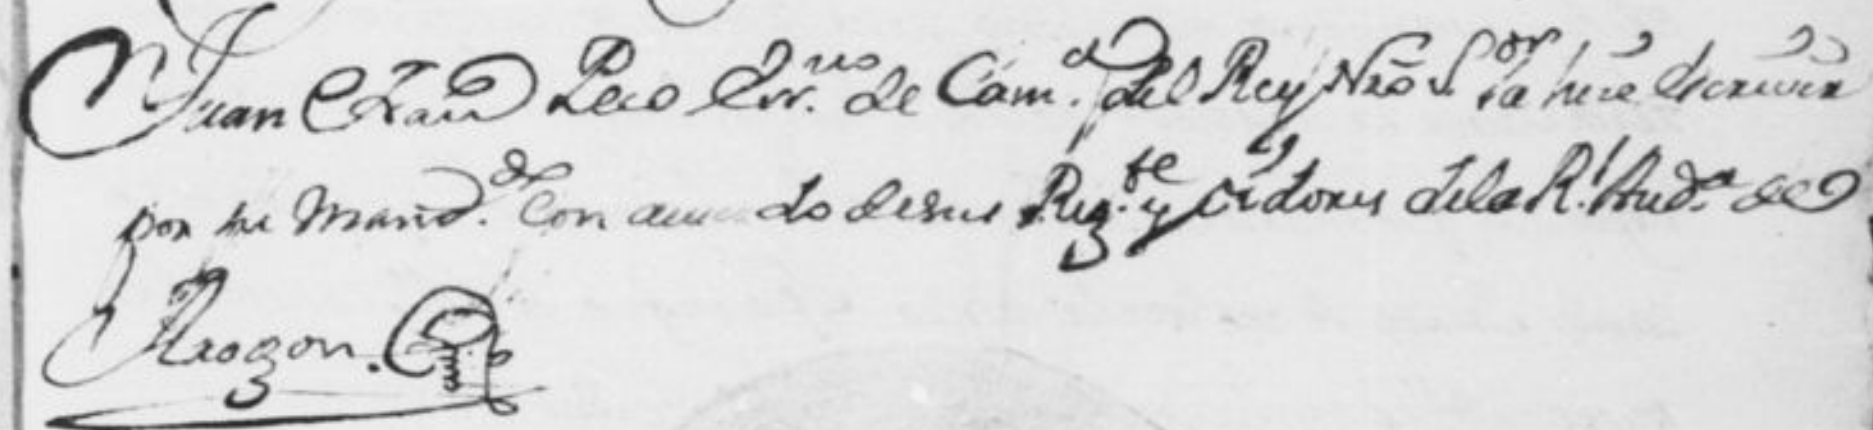 Juan Peco Ess.no de Cam.a del Rey Nro S.or la hice escrivir
por su Mand.do Con acuerdo de sus Reg.te y oidores dela R.l Aud.a de
Aragon.